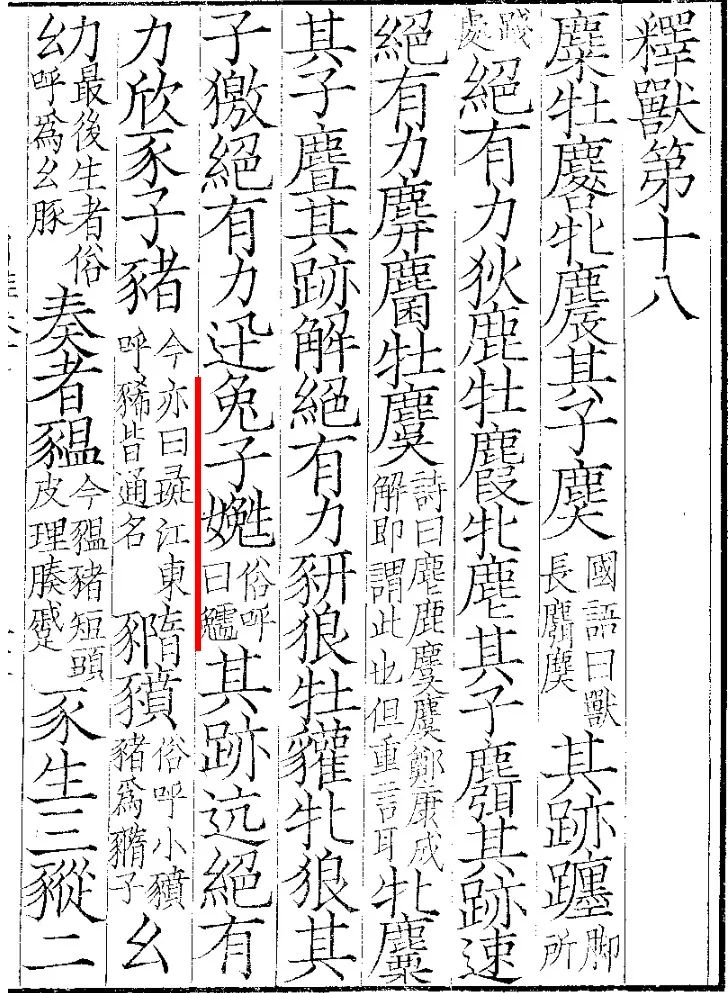 釋獸第十八
麋牡麔牝麎其子䴠國語曰獸長麛䴠其跡躔脚所
踐處絕有力狄鹿牡麚牝麀其子麛其跡速
絕有力䴪麕牡麌詩曰麀鹿麌麌鄭康成解即謂此也但重言耳牝麜
其子麆其跡解絕有力豜狼牡貛牝狼其
子獥絕有力迅兔子嬎俗呼曰其跡迒絕有
力欣豕子豬今亦曰彘江東呼豨皆通名䝐豶俗呼小豶豬爲䝐子幺
幼最後生者俗呼爲幺豚奏者豱今豱豬短頭皮理腠蹙豕生三豵二